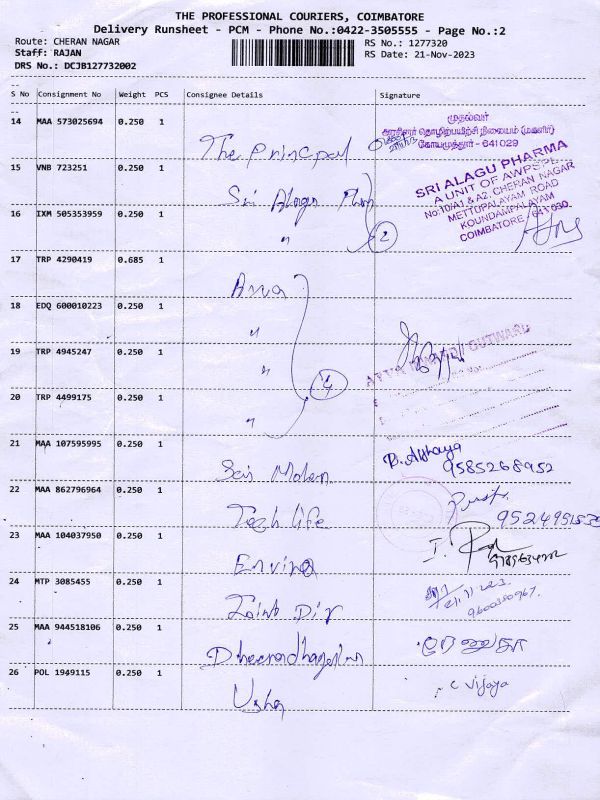 THE PROFESSIONAL COURIERS, COIMBATORE
Delivery Runsheet - PCM - Phone No.:0422-3505555 - Page No.:2
Route: CHERAN NAGAR
RS No.: 1277320
Staff: RAJAN
RS Date: 21-Nov-2023
DRS No.: DCJB127732002
S No Consignment No Weight PCS Consignee Details Signature
14 MAA 573025694 0.250 1 The Princpal
முதல்வர்
அரசினர் தொழிற்பயிற்சி நிலையம் (மகளிர்)
கோயமுத்தூர் - 641029
15 VNB 723251 0.250 1 Sri Alagu
SRI ALAGU PHARMA
A UNIT OF AWPSPL
No.10/A1 & A2, CHERAN NAGAR
METTUPALAYAM ROAD
KOUNDAMPALAYAM
COIMBATORE - 641 030.
16 IXM 505353959 0.250 1 " 2
17 TRP 4290419 0.685 1
18 EDQ 600010223 0.250 1 "
19 TRP 4945247 0.250 1 " 4
OUTWARD
20 TRP 4499175 0.250 1 "
21 MAA 107595995 0.250 1 Sai Mohan B. Akshaya
9585268952
22 MAA 862796964 0.250 1 Tech life
23 MAA 104037950 0.250 1
24 MTP 3085455 0.250 1 Joint Dir
25 MAA 944518106 0.250 1 ரேணுகா
26 POL 1949115 0.250 1 Usha C Vijaya